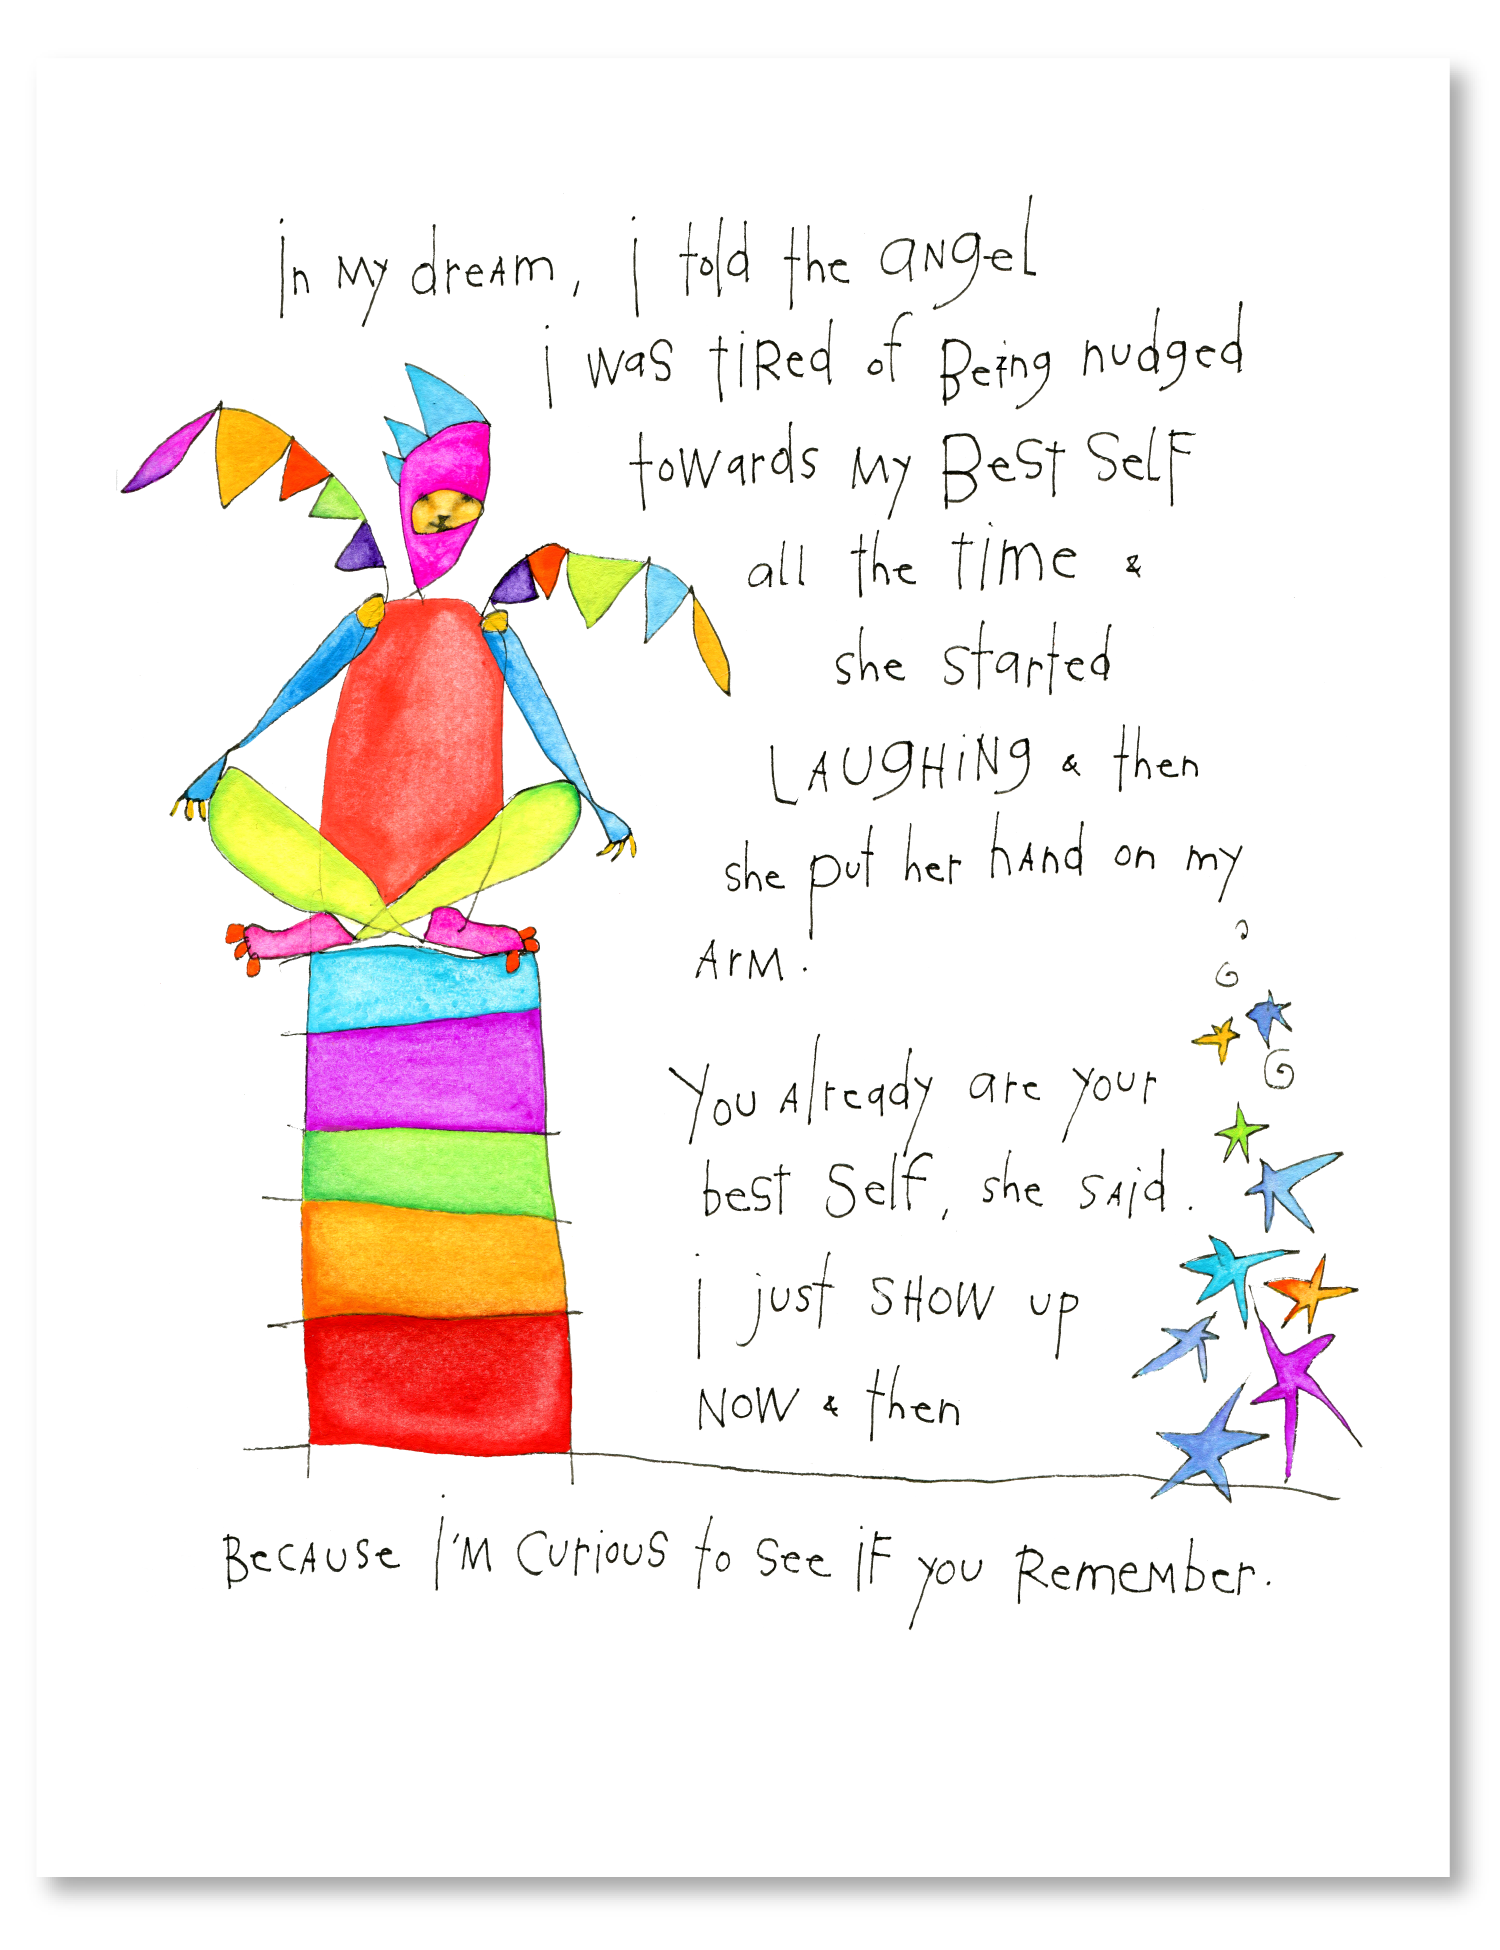 in my dream, i told the angel
i was tired of being nudged
towards my Best Self
all the time &
she started
LAUGHING & then
she put her hand on my
arm.
You already are your
best self, she said.
i just SHOW up
NOW & then
Because I'm curious to see if you Remember.